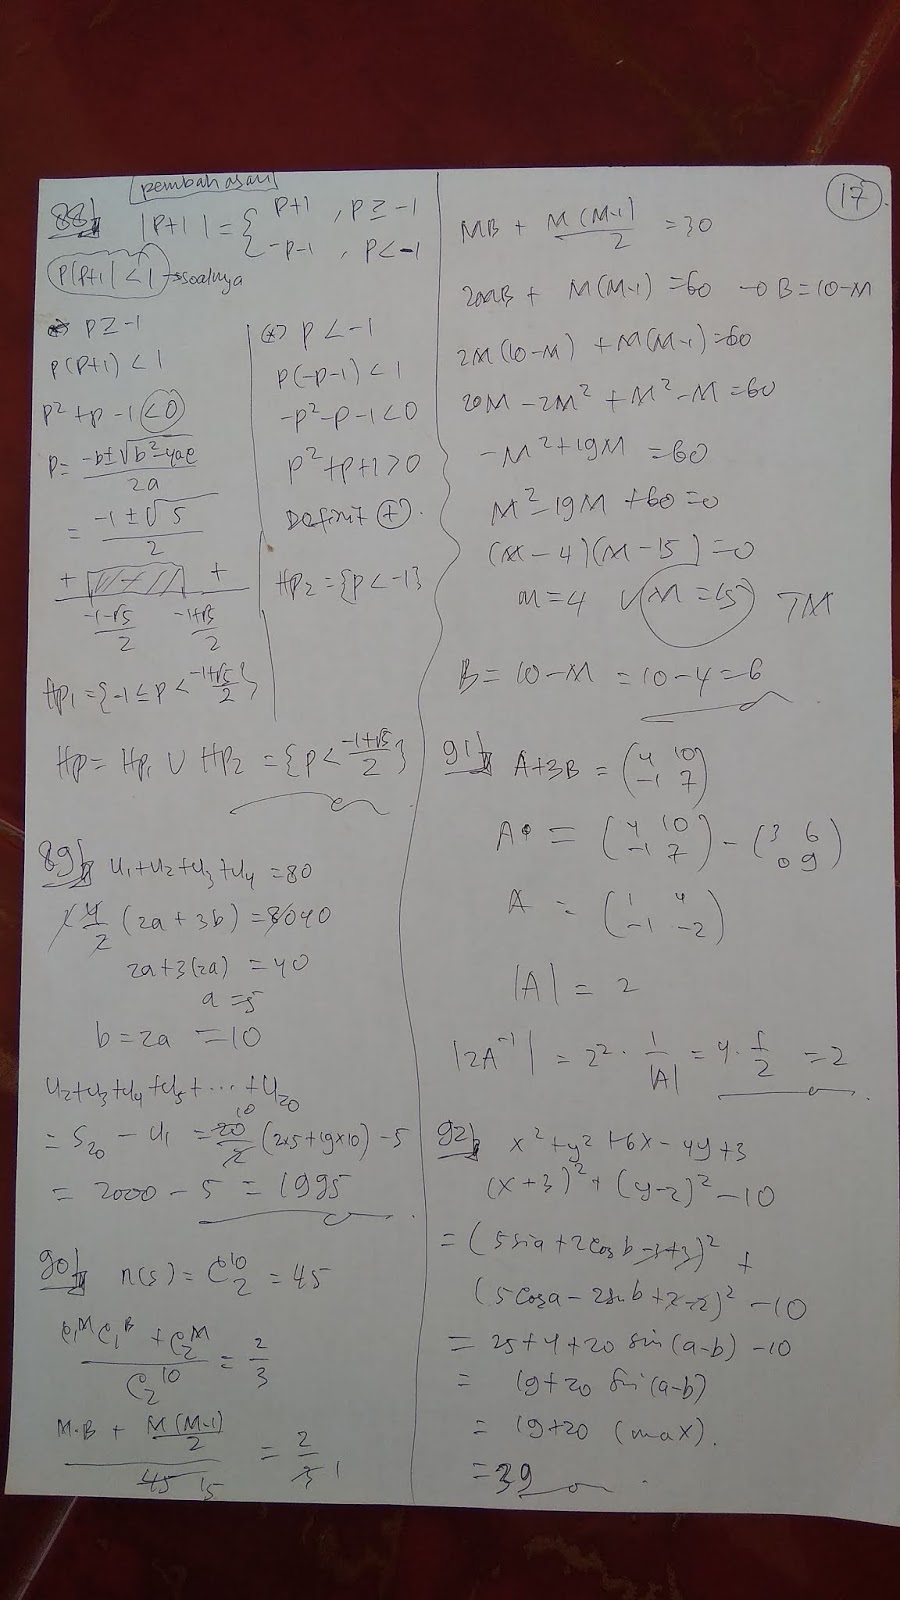 pembahasan
17
88) |p+1| = { p+1 , p ≥ -1
-p-1 , p < -1
p|p+1| < 1 → soalnya
(*) p ≥ -1
p(p+1) < 1
p² + p - 1 < 0
p = (-b ± √(b²-4ac)) / 2a
= (-1 ± √5) / 2
+ - - - +
(-1-√5)/2 (-1+√5)/2
Hp₁ = {-1 ≤ p < (-1+√5)/2}
(*) p < -1
p(-p-1) < 1
-p² - p - 1 < 0
p² + p + 1 > 0
Definit (+).
Hp₂ = {p < -1}
Hp = Hp₁ ∪ Hp₂ = {p < (-1+√5)/2}
89) u₁ + u₂ + u₃ + u₄ = 80
4/2 (2a + 3b) = 80 40
2a + 3(2a) = 40
a = 5
b = 2a = 10
u₂ + u₃ + u₄ + u₅ + ... + u₂₀
= S₂₀ - u₁ = 20/2 10 (2x5 + 19x10) - 5
= 2000 - 5 = 1995
90) n(s) = C₂¹⁰ = 45
(C₁ᴹ C₁ᴮ + C₂ᴹ) / C₂¹⁰ = 2/3
(M.B + M(M-1)/2) / 45 15 = 2/3 1
MB + M(M-1)/2 = 30
2MB + M(M-1) = 60 → B = 10-M
2M(10-M) + M(M-1) = 60
20M - 2M² + M² - M = 60
-M² + 19M = 60
M² - 19M + 60 = 0
(M - 4)(M - 15) = 0
M = 4 ∨ M = 15 TM
B = 10 - M = 10 - 4 = 6
91) A + 3B = (4 10
-1 7)
A = (4 10
-1 7) - (3 6
0 9)
A = (1 4
-1 -2)
|A| = 2
|2A⁻¹| = 2² · 1/|A| = 4 · 1/2 = 2
92) x² + y² + 6x - 4y + 3
(x+3)² + (y-2)² - 10
= (5 sin a + 2 cos b - 3 + 3)² +
(5 cos a - 2 sin b + 2 - 2)² - 10
= 25 + 4 + 20 sin(a-b) - 10
= 19 + 20 sin(a-b)
= 19 + 20 (max).
= 39